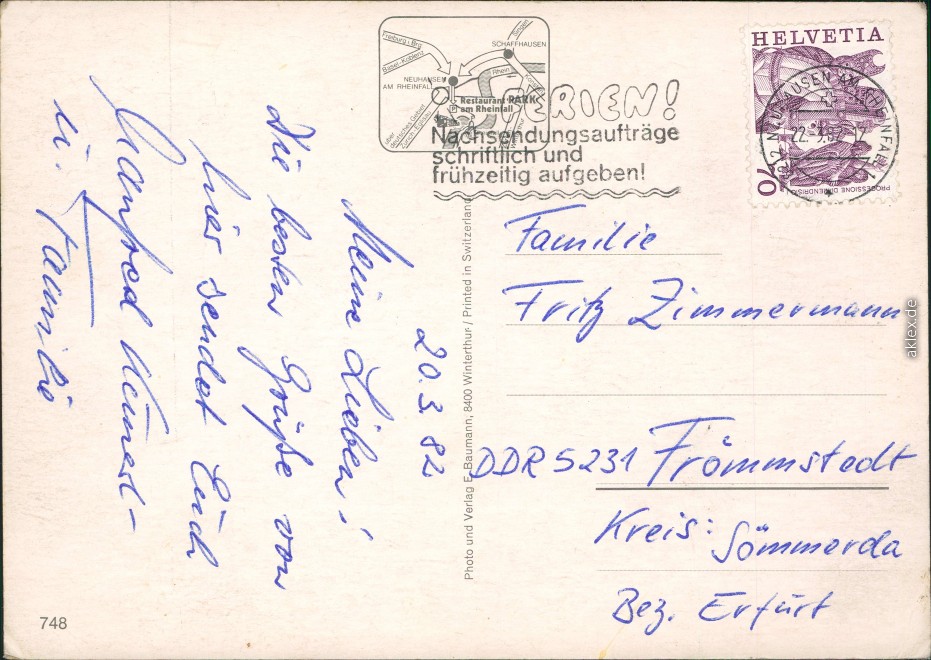 Freiburg i. Brg
Basel-Koblenz
Singen
SCHAFFHAUSEN
NEUHAUSEN
AM RHEINFALL
Rhein
Restaurant PARK
am Rheinfall
Winterthur
FERIEN!
Nachsendungsaufträge
schriftlich und
frühzeitig aufgeben!
HELVETIA
70
8212 NEUHAUSEN AM RHEINFALL 1
22.3.82-12
20.3.82
Meine Lieben!
Die besten Grüße von
hier sendet Euch
Manfred
u. Familie
Photo und Verlag E. Baumann, 8400 Winterthur / Printed in Switzerland
Familie
Fritz Zimmermann
DDR 5231 Frömmstedt
Kreis: Sömmerda
Bez. Erfurt
748
aklex.de